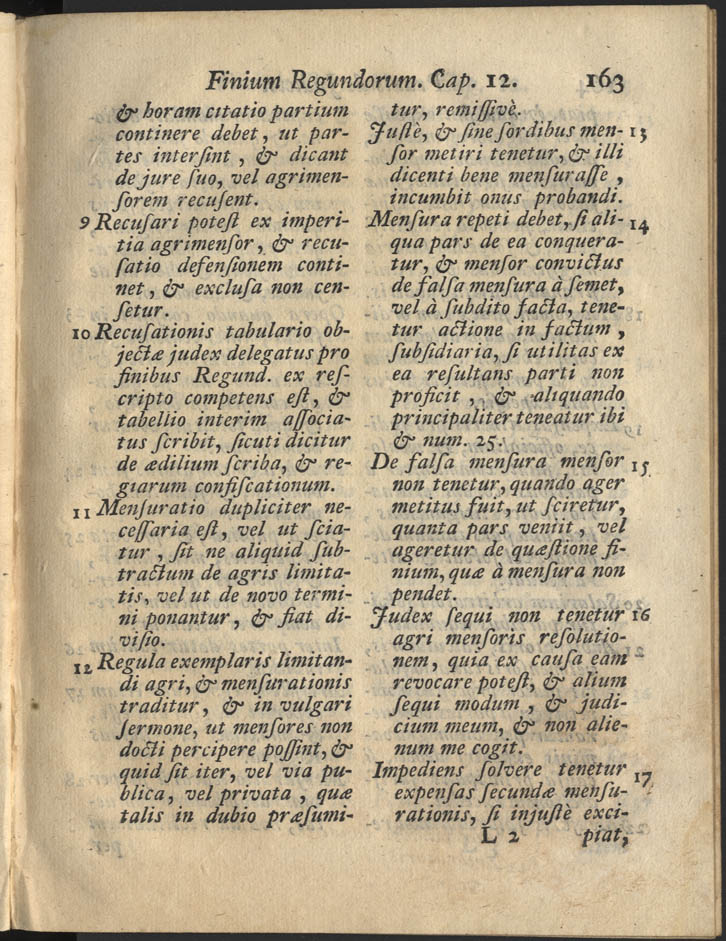 Finium Regundorum. Cap. 12. 163
& horam citatio partium
continere debet, ut par-
tes interſint, & dicant
de jure ſuo, vel agrimen-
ſorem recuſent.
9 Recuſari poteſt ex imperi-
tia agrimenſor, & recu-
ſatio defenſionem conti-
net, & excluſa non cen-
ſetur.
10 Recuſationis tabulario ob-
jectæ judex delegatus pro
finibus Regund. ex reſ-
cripto competens eſt, &
tabellio interim aſſocia-
tus ſcribit, ſicuti dicitur
de ædilium ſcriba, & re-
giarum confiſcationum.
11 Menſuratio dupliciter ne-
ceſſaria eſt, vel ut ſcia-
tur, ſit ne aliquid ſub-
tractum de agris limita-
tis, vel ut de novo termi-
ni ponantur, & fiat di-
viſio.
12 Regula exemplaris limitan-
di agri, & menſurationis
traditur, & in vulgari
ſermone, ut menſores non
docti percipere poſſint, &
quid ſit iter, vel via pu-
blica, vel privata, quæ
talis in dubio præſumi-
tur, remiſſivè.
Juſtè, & ſine ſordibus men- 13
ſor metiri tenetur, & illi
dicenti bene menſuraſſe,
incumbit onus probandi.
Menſura repeti debet, ſi ali- 14
qua pars de ea conquera-
tur, & menſor convictus
de falſa menſura à ſemet,
vel à ſubdito facta, tene-
tur actione in factum,
ſubſidiaria, ſi utilitas ex
ea reſultans parti non
proficit, & aliquando
principaliter teneatur ibi
& num. 25.
De falſa menſura menſor 15
non tenetur, quando ager
metitus fuit, ut ſciretur,
quanta pars veniit, vel
ageretur de quæſtione fi-
nium, quæ à menſura non
pendet.
Judex ſequi non tenetur 16
agri menſoris reſolutio-
nem, quia ex cauſa eam
revocare poteſt, & alium
ſequi modum, & judi-
cium meum, & non alie-
num me cogit.
Impediens ſolvere tenetur 17
expenſas ſecundæ menſu-
rationis, ſi injuſtè exci-
L 2 piat,